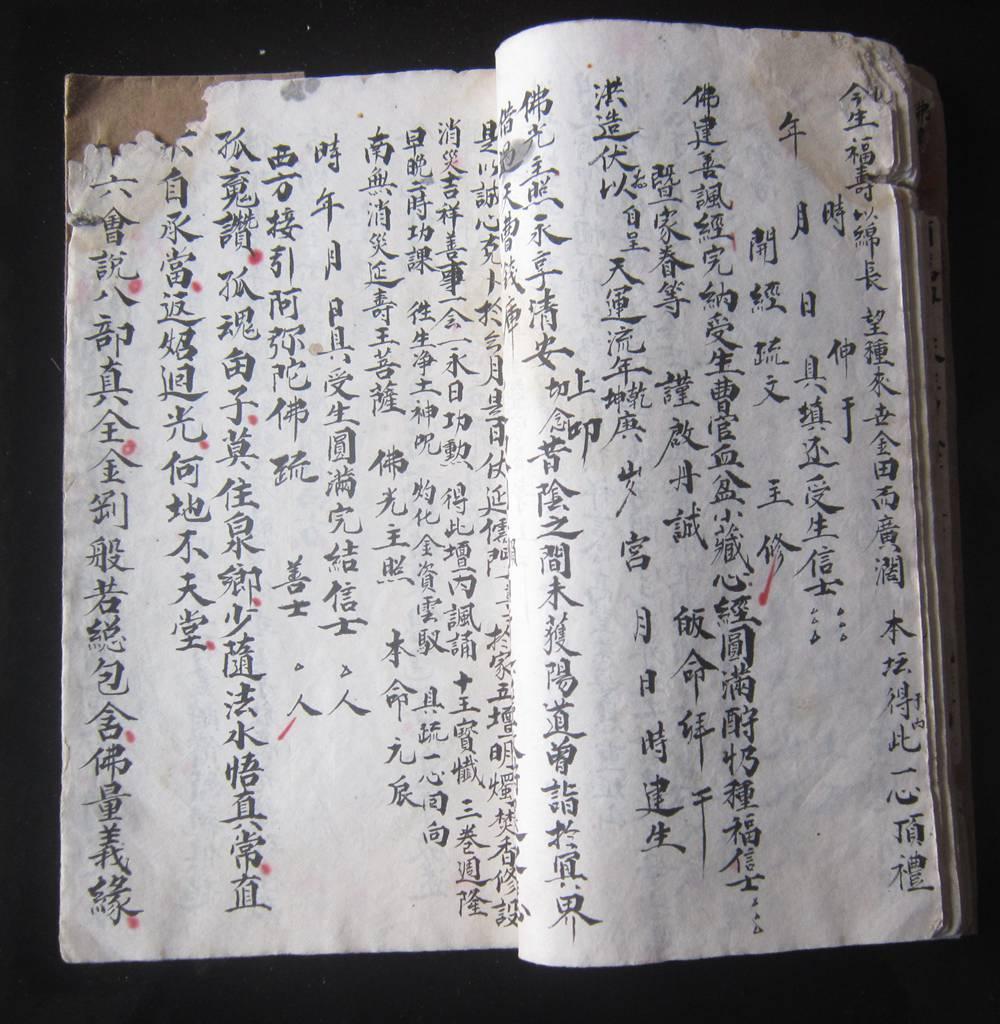 今生一福壽以綿長 望種來世金田而廣濶 本坛得此一心頂禮
於内
時 伸于
年 月 日 具填还受生信士
開經疏文 主修
佛建善諷經完納受生曹官血盆小藏心經圓滿酧 種福信士
暨家眷等 謹啟丹誠 皈命拜干
洪造伏以 自呈 天運流年乾坤庚 岁 宮 月 日 時建生
上叩
佛光主照永享清安 切念昔陰之間未獲陽道曽詣扵冥界
是以誠心 扵今月是日伏延儒門 扵家五壇明燭焚香修設
消災吉祥善事一会一永日功勲 得此壇内諷誦 十王寳懺 三卷週隆
早晚二時功課 徃生净土神咒 灼化金資雲馭 具疏一心囬向
南無消災延壽王菩薩 佛光主照 本命元辰
時 年 月 日具受生圓滿完結信士 人
西方接引阿弥陀佛 疏 善士 人
孤䰟讚 孤魂由子莫住泉鄉少隨法水悟真常直
自承當返炤迴光何地不天堂
六會說八部真全金剛般若総包含佛量義緣